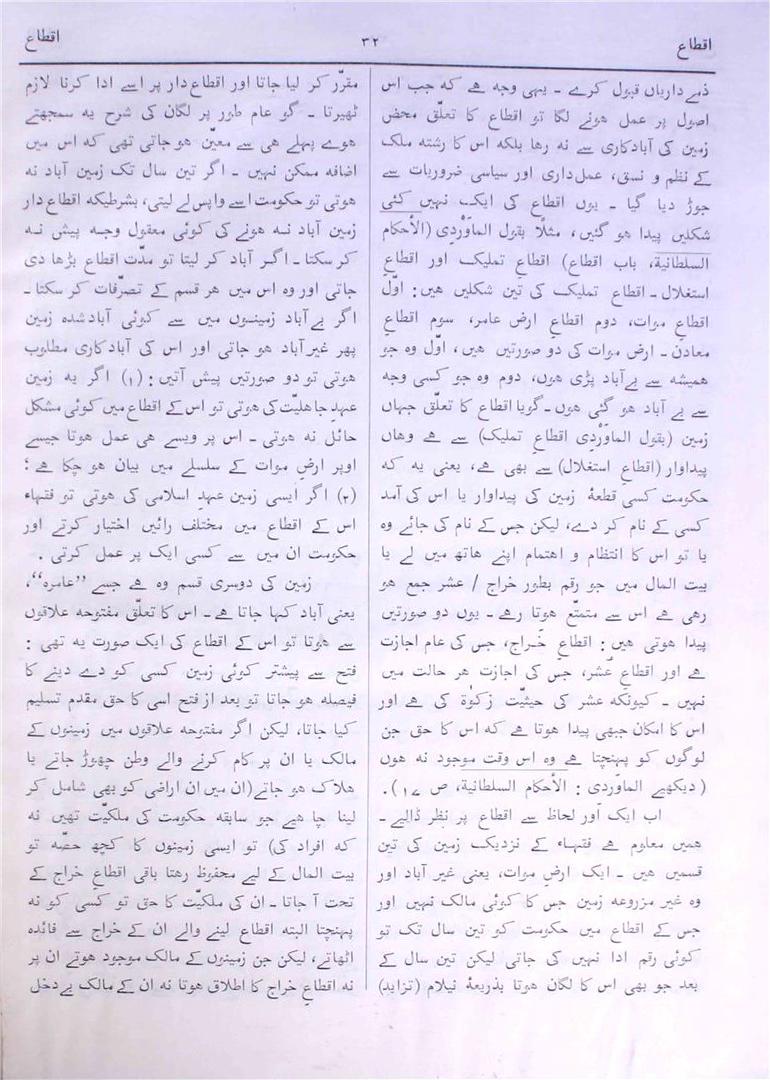 اقطاع
۳۲
اقطاع
ذمے داریاں قبول کرے ۔ یہی وجہ ہے کہ جب اس
اصول پر عمل ہونے لگا تو اقطاع کا تعلّق محض
زمین کی آبادکاری سے نہ رہا بلکہ اس کا رشتہ ملک
کے نظم و نسق، عمل‌داری اور سیاسی ضروریات سے
جوڑ دیا گیا ۔ یوں اقطاع کی ایک نہیں کئی
شکلیں پیدا ہو گئیں، مثلًا بقول الماَوَرْدِی (الأحکام
السلطانیة، باب اقطاع) اقطاعِ تملیک اور اقطاعِ
استغلال ۔ اقطاع تملیک کی تین شکلیں ہیں : اوّل
اقطاع موات، دوم اقطاعِ ارض عامر، سوم اقطاعِ
معادن ۔ ارض موات کی دو صورتیں ہیں، اوّل وہ جو
ہمیشہ سے بےآباد پڑی ہوں، دوم وہ جو کسی وجہ
سے بے آباد ہو گئی ہوں ۔ گویا اقطاع کا تعلّق جہاں
زمین (بقول الماَوَرْدِی اقطاعِ تملیک) سے ہے وہاں
پیداوار (اقطاعِ استغلال) سے بھی ہے، یعنی یہ کہ
حکومت کسی قطعۂ زمین کی پیداوار یا اس کی آمد
کسی کے نام کر دے، لیکن جس کے نام کی جائے وہ
یا تو اس کا انتظام و اہتمام اپنے ہاتھ میں لے یا
بیت المال میں جو رقم بطور خراج / عشر جمع ہو
رہی ہے اس سے متمتّع ہوتا رہے ۔ یوں دو صورتیں
پیدا ہوتی ہیں : اقطاعِ خَراج، جس کی عام اجازت
ہے اور اقطاعِ عُشر، جس کی اجازت ہر حالت میں
نہیں ۔ کیونکہ عشر کی حیثیّت زکوٰۃ کی ہے اور
اس کا امکان جبھی پیدا ہوتا ہے کہ اس کا حق جن
لوگوں کو پہنچتا ہے وہ اس وقت موجود نہ ہوں
(دیکھیے الماَوَردی : الأحکام السلطانیة، ص ۱۷) .
اب ایک اَور لحاظ سے اقطاع پر نظر ڈالیے ۔
ہمیں معلوم ہے فقہاء کے نزدیک زمین کی تین
قسمیں ہیں ۔ ایک ارضِ موات، یعنی غیر آباد اور
وہ غیر مزروعہ زمین جس کا کوئی مالک نہیں اور
جس کے اقطاع میں حکومت کو تین سال تک تو
کوئی رقم ادا نہیں کی جاتی لیکن تین سال کے
بعد جو بھی اس کا لگان ہوتا بذریعۂ نیلام (تزاید)
مقرّر کر لیا جاتا اور اقطاع‌دار پر اسے ادا کرنا لازم
ٹھیرتا ۔ گو عام طور پر لگان کی شرح یہ سمجھتے
ہوے پہلے ہی سے معیّن ہو جاتی تھی کہ اس میں
اضافہ ممکن نہیں ۔ اگر تین سال تک زمین آباد نہ
ہوتی تو حکومت اسے واپس لے لیتی، بشرطیکہ اقطاع دار
زمین آباد نہ ہونے کی کوئی معقول وجہ پیش نہ
کر سکتا ۔ اگر آباد کر لیتا تو مدّت اقطاع بڑھا دی
جاتی اور وہ اس میں ہر قسم کے تصرّفات کر سکتا ۔
اگر بےآباد زمینوں میں سے کوئی آباد شدہ زمین
پھر غیر آباد ہو جاتی اور اس کی آباد کاری مطلوب
ہوتی تو دو صورتیں پیش آتیں : (۱) اگر یہ زمین
عہدِ جاہلیّت کی ہوتی تو اس کے اقطاع میں کوئی مشکل
حائل نہ ہوتی ۔ اس پر ویسے ہی عمل ہوتا جیسے
اوپر ارضِ موات کے سلسلے میں بیان ہو چکا ہے ؛
(۲) اگر ایسی زمین عہدِ اسلامی کی ہوتی تو فقہاء
اس کے اقطاع میں مختلف رائیں اختیار کرتے اور
حکومت ان میں سے کسی ایک پر عمل کرتی .
زمین کی دوسری قسم وہ ہے جسے ”عامرہ“،
یعنی آباد کہا جاتا ہے ۔ اس کا تعلّق مفتوحہ علاقوں
سے ہوتا تو اس کے اقطاع کی ایک صورت یہ تھی :
فتح سے پیشتر کوئی زمین کسی کو دے دینے کا
فیصلہ ہو جاتا تو بعد از فتح اسی کا حق مقدم تسلیم
کیا جاتا، لیکن اگر مفتوحہ علاقوں میں زمینوں کے
مالک یا ان پر کام کرنے والے وطن چھوڑ جاتے یا
ہلاک ہو جاتے (ان میں ان اراضی کو بھی شامل کر
لینا چاہیے جو سابقہ حکومت کی ملکیّت تھیں نہ
کہ افراد کی) تو ایسی زمینوں کا کچھ حصّہ تو
بیت المال کے لیے محفوظ رہتا باقی اقطاعِ خراج کے
تحت آ جاتا ۔ ان کی ملکیّت کا حق تو کسی کو نہ
پہنچتا البتہ اقطاع لینے والے ان کے خراج سے فائدہ
اٹھاتے، لیکن جن زمینوں کے مالک موجود ہوتے ان پر
نہ اقطاعِ خراج کا اطلاق ہوتا نہ ان کے مالک بےدخل